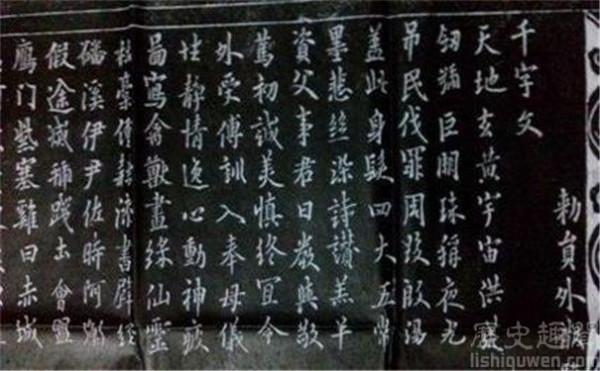 勅員外
千字文
天地玄黃宇宙洪荒
劒號巨闕珠稱夜光
吊民伐罪周發殷湯
蓋此身髮四大五常
墨悲絲染詩讃羔羊
資父事君曰嚴與敬
篤初誠美慎終宜令
外受傅訓入奉母儀
性靜情逸心動神疲
啚寫禽獸畫綵仙靈
杜稾鍾隸漆書壁經
磻溪伊尹佐時阿衡
假途滅虢踐土會盟
鴈門紫塞雞田赤城
歷史趣聞
lishiquwen.com